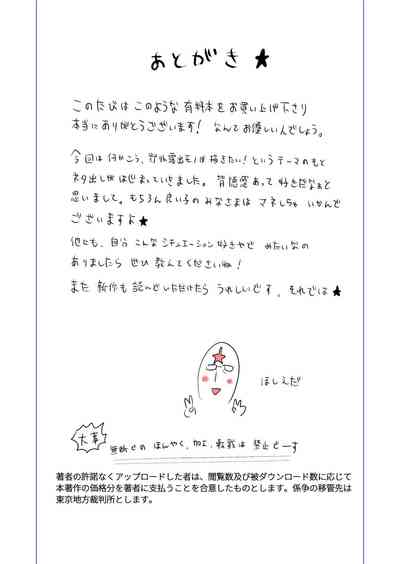 あとがき★
このたびは このような 有料本を お買い上げ下さり
本当に ありがとうございます! なんてお優しい人でしょう。
今回は 何かこう、野外露出モノが描きたい! という テーマのもと
ネタ出しが はじまっていきました。 背徳感あって 好きだなぁと
思いまして。もちろん 良い子の みなさまは マネしちゃ いかんで
ございますよ★
他にも、自分 こんな シチュエーション 好きやで みたいなの
ありましたら ぜひ 教えてくださいね!
また 新作も 読んでいただけたら うれしいです。 それでは★
ほしえだ
大事
無断での ほんやく、加工、転載は 禁止でーす
著者の許諾なくアップロードした者は、閲覧数及び被ダウンロード数に応じて
本著作の価格分を著者に支払うことを合意したものとします。係争の移管先は
東京地方裁判所とします。